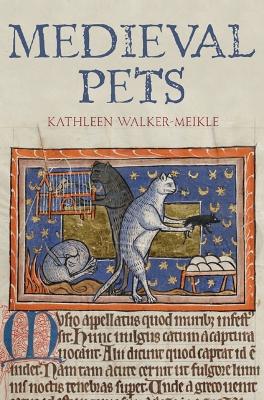 MEDIEVAL
PETS
KATHLEEN WALKER-MEIKLE
Musio appellatus quod muribz infest'
sit. Hunc uulgus catum a captura
uocant. Alii dicunt quod captat id ē
uidet. Nam tam acute cernit ut fulgore lumi
nis noctis tenebras super&. Unde a greco uenit